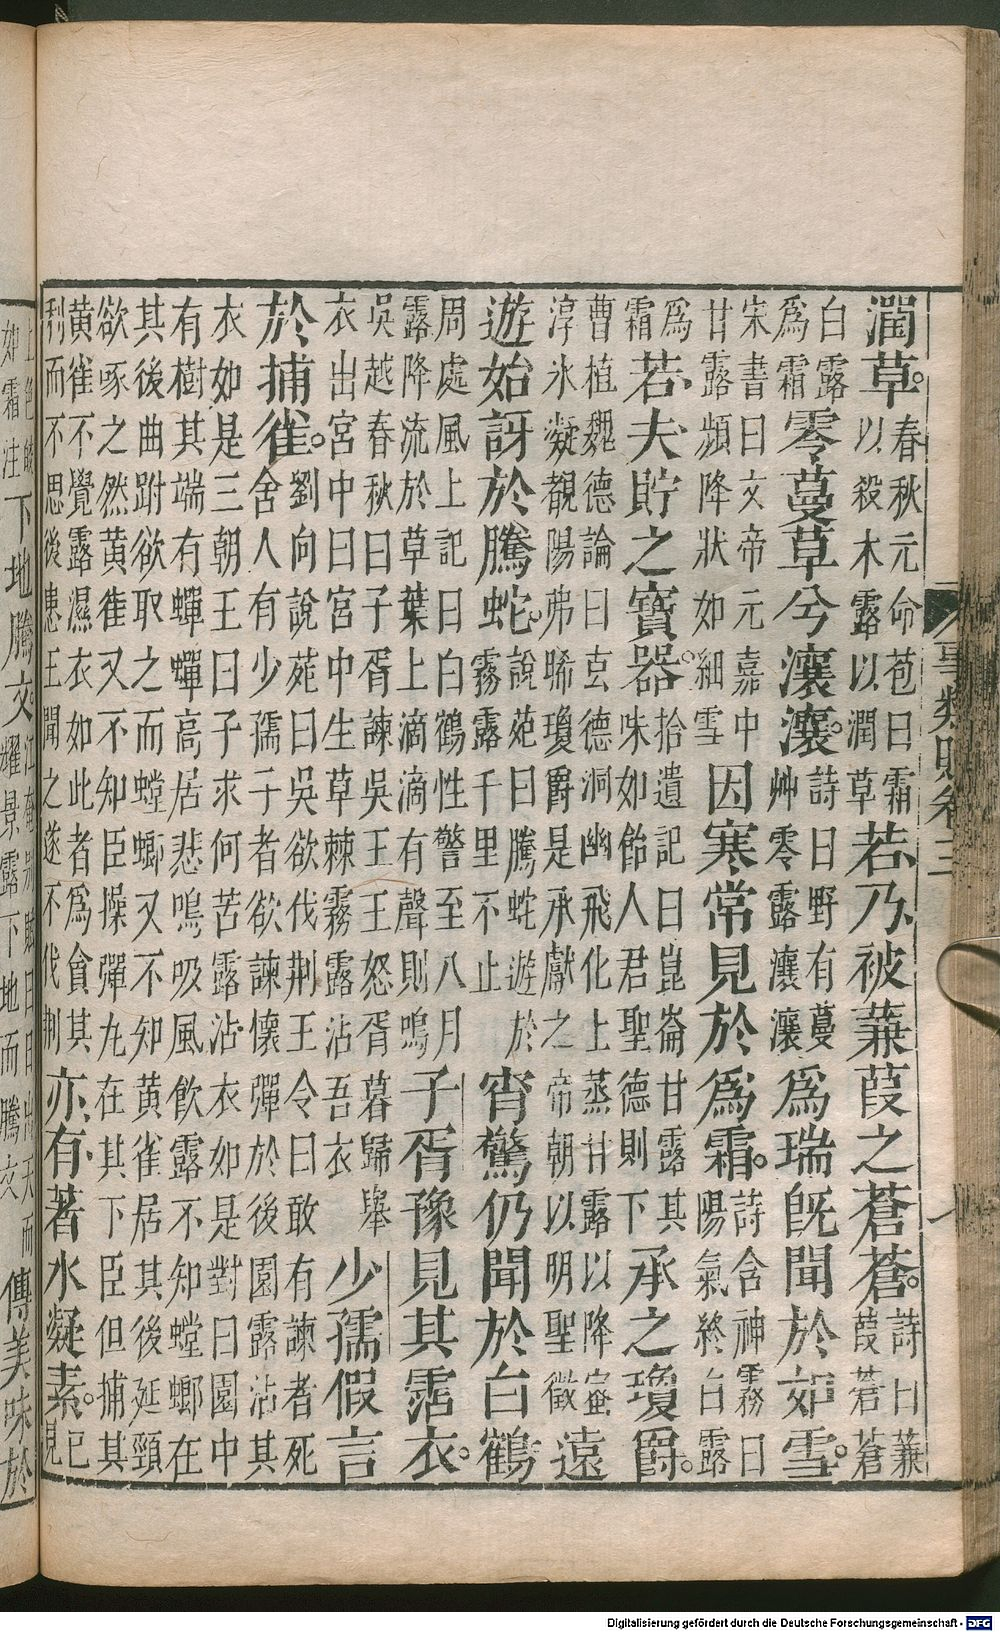 潤草。春秋元命苞曰霜以殺木露以潤草若乃被蒹葭之蒼蒼。詩曰蒹葭蒼蒼
白露爲霜零蔓草兮瀼瀼。詩曰野有蔓艸零露瀼瀼爲瑞旣聞於如雪。
宋書曰文帝元嘉中甘露頻降狀如細雪因寒常見於爲霜。詩含神霧曰陽氣終白露
爲霜若夫貯之寶器。拾遺記曰崑崙甘露其味如飴人君聖德則下承之瓊爵。
曹植魏德論曰玄德洞幽飛化上蒸甘露以降蜜淳氷凝覩陽弗晞瓊爵是承獻之帝朝以明聖徵遠
遊始訝於騰蛇。說苑曰騰蛇遊於霧露千里不止宵驚仍聞於白鶴
周處風土記曰白鶴性警至八月露降流於草葉上滴滴有聲則鳴子胥豫見其霑衣。
吳越春秋曰子胥諫吳王王怒胥暮歸舉衣出宮中曰宮中生草棘霧露沾吾衣少孺假言
於捕雀。劉向說苑曰吳欲伐荆王令曰敢有諫者死舍人有少孺子者欲諫懷彈於後園露沾其
衣如是三朝王曰子求何苦露沾衣如是對曰園中有樹其端有蟬蟬高居悲鳴吸風飲露不知螳螂在
其後曲跗欲取之而螳螂又不知黄雀居其後延頸欲啄之然黄雀又不知臣操彈九在其下臣但捕其
黄雀不覺露濕衣如此者爲貪其利而不思後患王聞之遂不伐荆亦有著水凝素。已見
事類賦卷三
如霜注下地騰文耀景露下地而騰文傳美味於
Digitalisierung gefördert durch die Deutsche Forschungsgemeinschaft - DFG